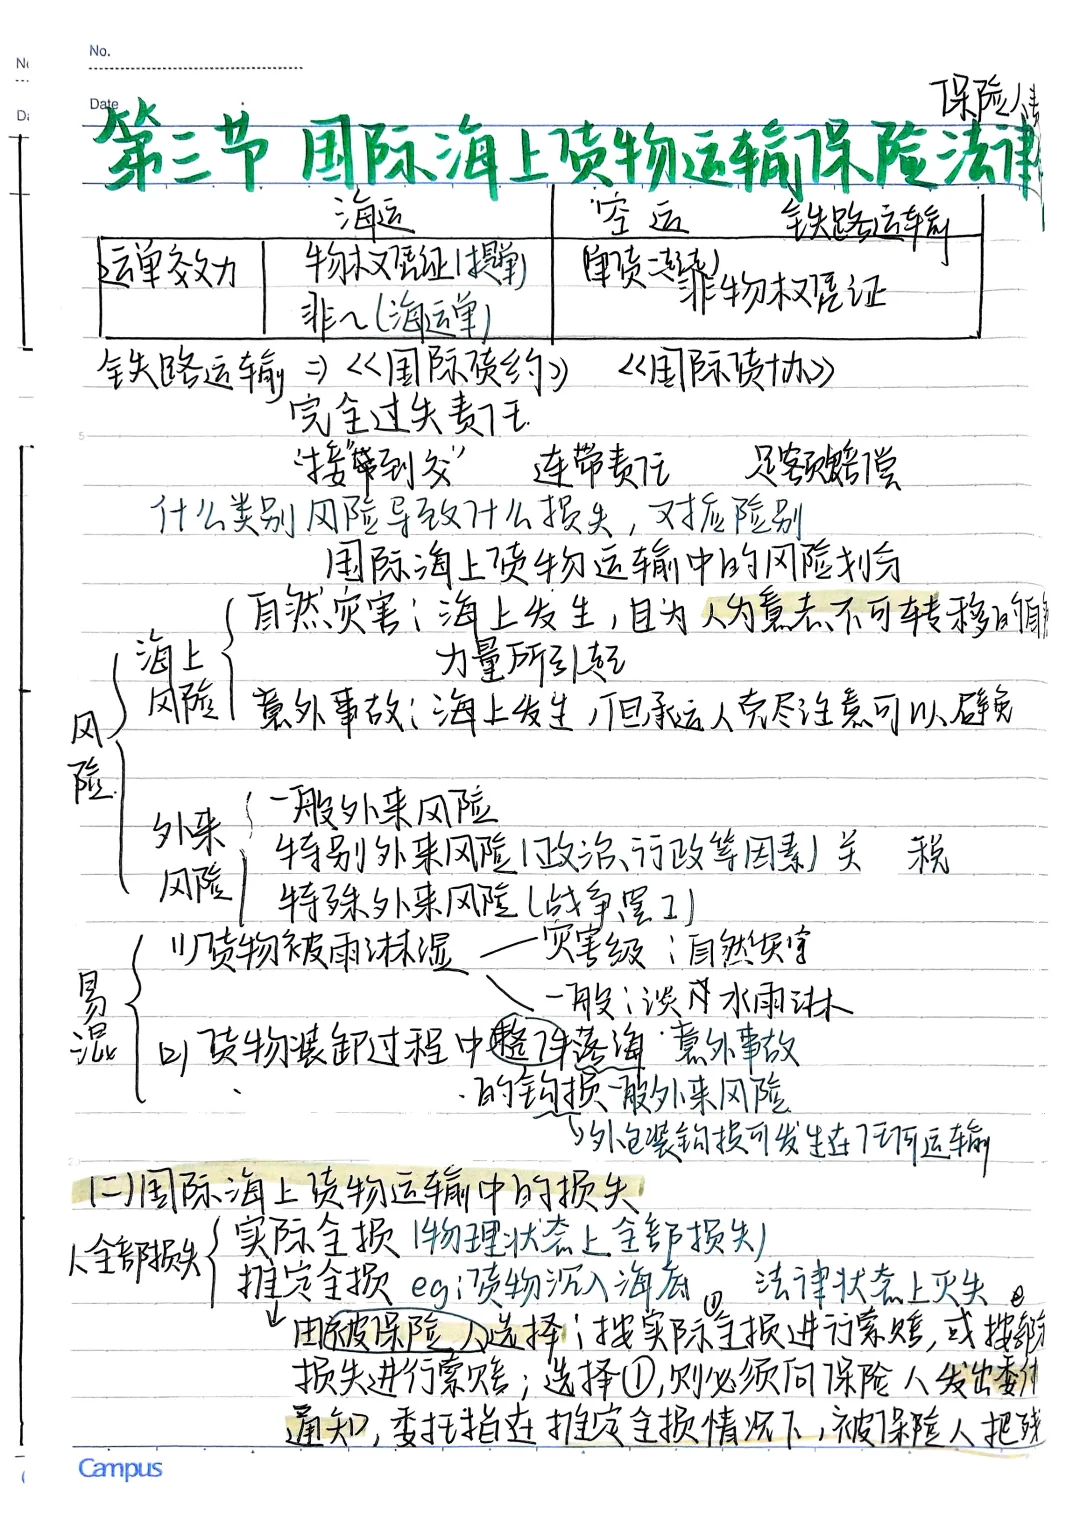 No.
Date
保险人
第三节 国际海上货物运输保险法律
海运 空运 铁路运输
运单效力 物权凭证(提单) (单货
非~(海运单) 非物权凭证
铁路运输 => <<国际货约>> <<国际货协>>
完全过失责任
"接"带到交" 连带责任 足额赔偿
什么类别风险导致什么损失,对应险别
国际海上货物运输中的风险划分
自然灾害:海上发生,且为人为意志不可转移的自
力量所引起
海上
风险
意外事故:海上发生,但承运人克尽注意可以避免
风
险
一般外来风险
外来
风险
特别外来风险(政治、行政等因素) 关 税
特殊外来风险(战争罢工)
易
混
(1)货物被雨淋湿 灾害级:自然灾害
一般:淡水雨淋
(2)货物装卸过程中整件落海 意外事故
的钩损 一般外来风险
外包装钩损可发生在任何运输
(二)国际海上货物运输中的损失
1、全部损失
实际全损(物理状态上全部损失)
推定全损 eg:货物沉入海底 法律状态上灭失
由被保险人选择:①按实际全损进行索赔,或②按部分
损失进行索赔;选择①,则必须向保险人发出委付
通知,委托指在推定全损情况下,被保险人把残
Campus